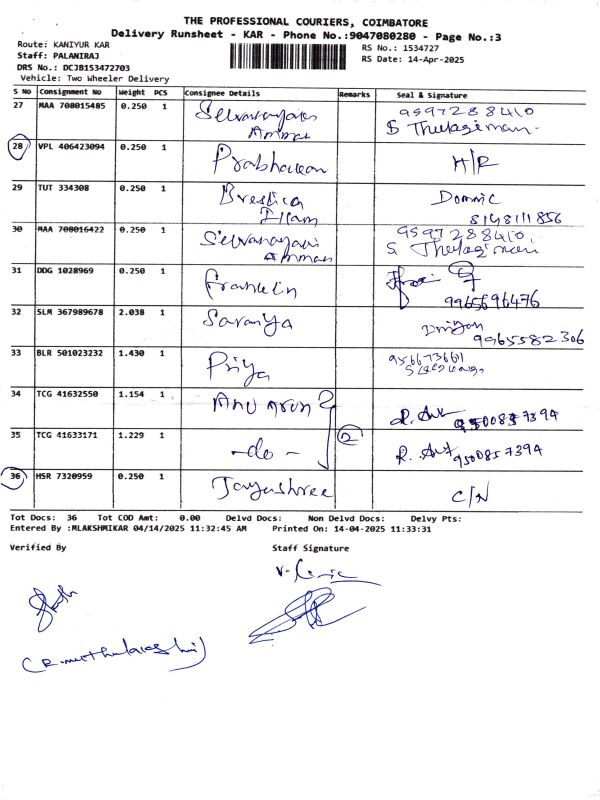 THE PROFESSIONAL COURIERS, COIMBATORE
Delivery Runsheet - KAR - Phone No.:9047080280 - Page No.:3
Route: KANIYUR KAR
RS No.: 1534727
Staff: PALANIRAJ
RS Date: 14-Apr-2025
DRS No.: DCJB153472703
Vehicle: Two Wheeler Delivery
S No Consignment No Weight PCS Consignee Details Remarks Seal & Signature
27 MAA 708015485 0.250 1 Selvanayaki 9597288410
Amman S Thulasimani
28 VPL 406423094 0.250 1 Prabhakaran H/R
29 TUT 334308 0.250 1 Dominic
Illam 8148111856
30 MAA 708016422 0.250 1 Selvanayaki 9597288410
Amman S Thulasimani
31 DDG 1028969 0.250 1 Franklin
9965696476
32 SLM 367989678 2.038 1 Saranya
9965582306
33 BLR 501023232 1.430 1 Priya
34 TCG 41632550 1.154 1 Anu Arun 9500857394
35 TCG 41633171 1.229 1 -do- 2 9500857394
36 HSR 7320959 0.250 1 Jayashree C/N
Tot Docs: 36 Tot COD Amt: 0.00 Delvd Docs: Non Delvd Docs: Delvy Pts:
Entered By :MLAKSHMIKAR 04/14/2025 11:32:45 AM Printed On: 14-04-2025 11:33:31
Verified By Staff Signature
(R.muthulakshmi)